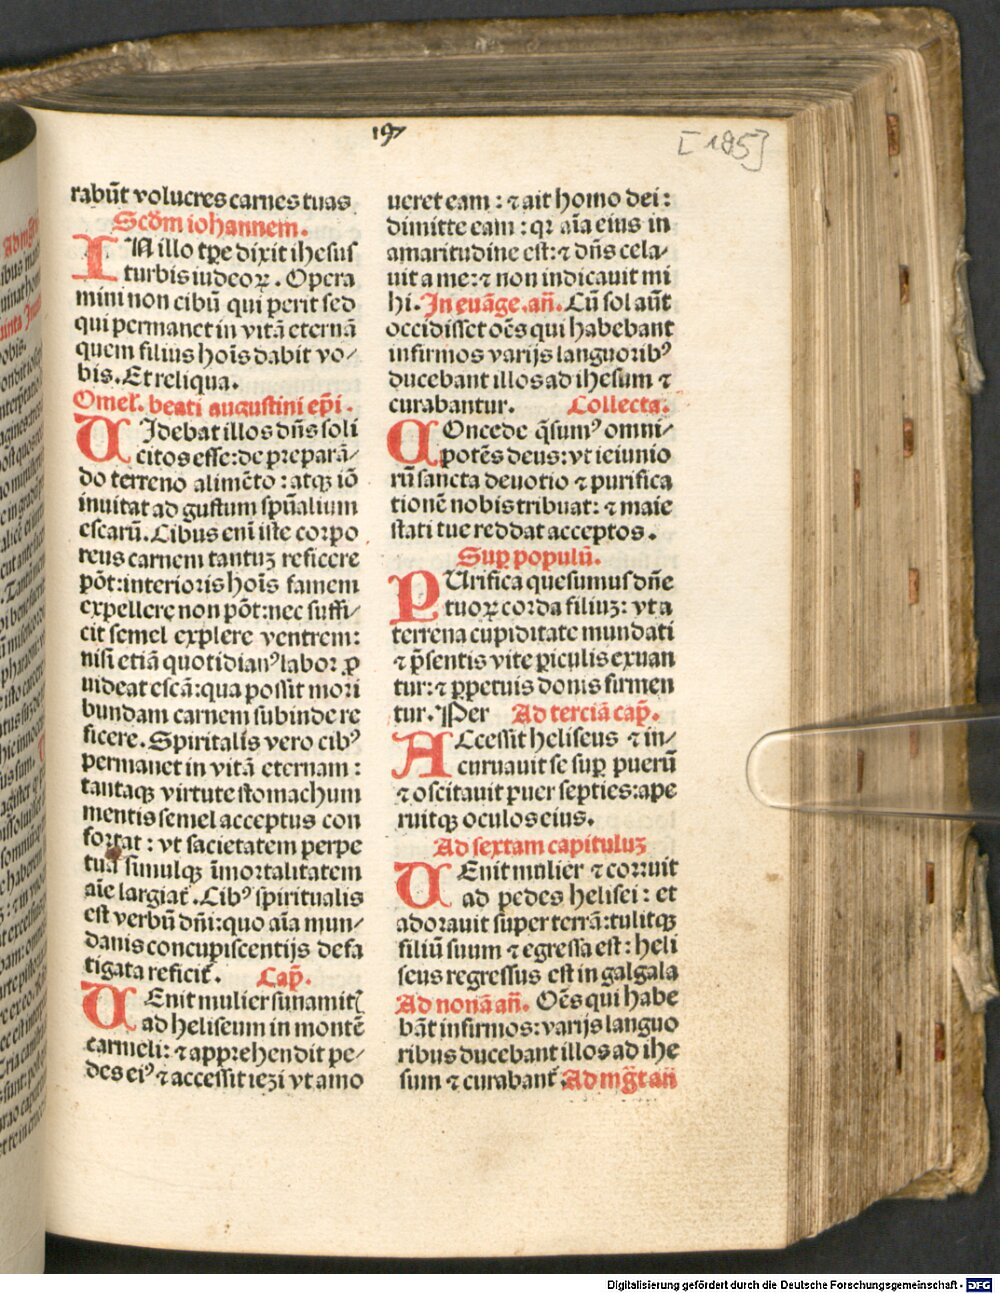 197
[185]
rabūt volucres carnes tuas
Scďm iohannem.
IN illo tꝑe dixit ihesus
turbis iudeoꝝ. Opera
mini non cibū qui perit sed
qui permanet in vitā eternā
quem filius hoīs dabit vo⸗
bis. Et reliqua.
Omeľ. beati augustini epī.
VIdebat illos dn̄s soli
citos esse: de preparā⸗
do terreno alimēto: atqꝫ iō
inuitat ad gustum spūalium
escarū. Cibus enī iste corpo
reus carnem tantuꝫ reficere
pōt: interioris hoīs famem
expellere non pōt: nec suffi⸗
cit semel explere ventrem:
nisi etiā quotidianꝰ labor ꝓ
uideat escā: qua possit mori
bundam carnem subinde re
ficere. Spiritalis vero cibꝰ
permanet in vitā eternam:
tantaqꝫ virtute stomachum
mentis semel acceptus con
fortat: vt sacietatem perpe
tuā simulqꝫ īmortalitatem
aīe largiať. Cibꝰ spiritualis
est verbū dn̄i: quo aīa mun⸗
danis concupiscentijs defa
tigata reficiť. Cap̄.
VEnit mulier sunamitꝭ
ad heliseum in montē
carmeli: ⁊ apprehendit pe⸗
des eiꝰ ⁊ accessit iezi vt amo
ueret eam: ⁊ ait homo dei:
dimitte eam: qꝛ aīa eius in
amaritudine est: ⁊ dn̄s cela⸗
uit a me: ⁊ non indicauit mi
hi. In euāge. an̄. Cū sol aūt
occidisset oēs qui habebant
infirmos varijs languoribꝰ
ducebant illos ad ihesum ⁊
curabantur. Collecta.
COncede q̄sumꝰ omni⸗
potēs deus: vt ieiunio
rū sancta deuotio ⁊ purifica
tionē nobis tribuat: ⁊ maie
stati tue reddat acceptos.
Suꝑ populū.
PUrifica quesumus dn̄e
tuoꝝ corda filiuꝫ: vt a
terrena cupiditate mundati
⁊ p̄sentis vite ꝑiculis exuan
tur: ⁊ ꝑpetuis donis firmen
tur. Per Ad terciā cap̄.
ACcessit heliseus ⁊ in⸗
curuauit se suꝑ puerū
⁊ oscitauit puer septies: ape
ruitqꝫ oculos eius.
Ad sextam capituluꝫ
VEnit mulier ⁊ corruit
ad pedes helisei: et
adorauit super terrā: tulitqꝫ
filiū suum ⁊ egressa est: heli
seus regressus est in galgala
Ad nonā an̄. Oēs qui habe
bāt infirmos: varijs languo
ribus ducebant illos ad ihe
sum ⁊ curabanť. Ad mg̃t an̄
Digitalisierung gefördert durch die Deutsche Forschungsgemeinschaft - DFG